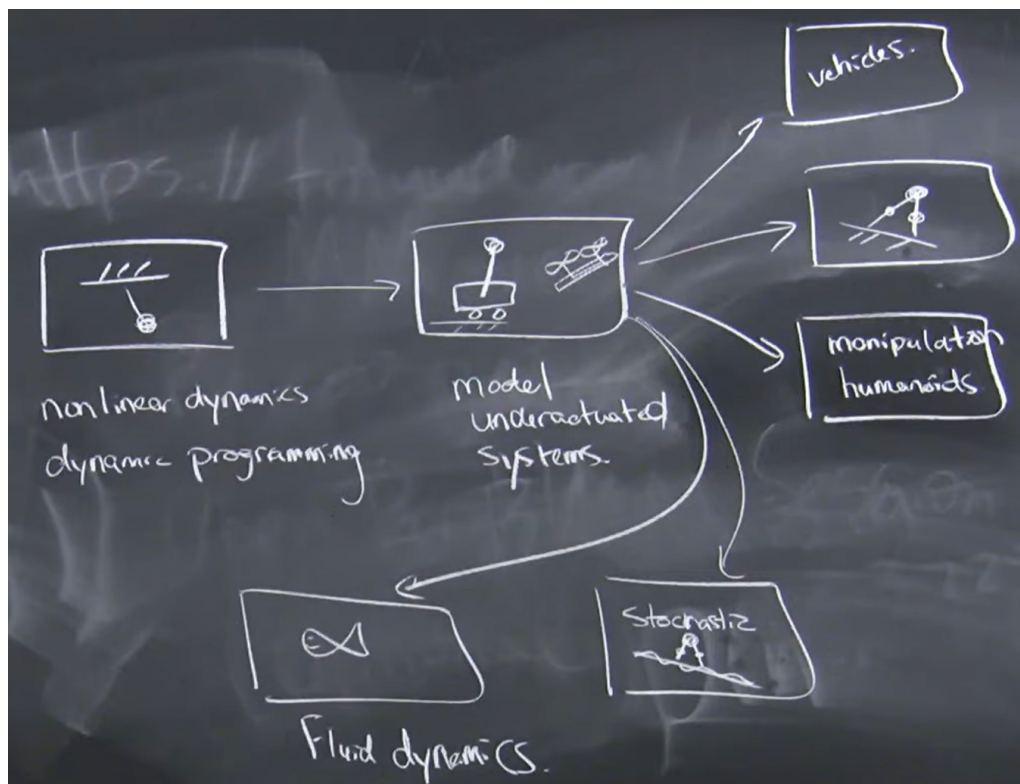 vehicles.
nonlinear dynamics
dynamic programming
model
underactuated
systems.
manipulation
humanoids
Stochastic
Fluid dynamics.
https://